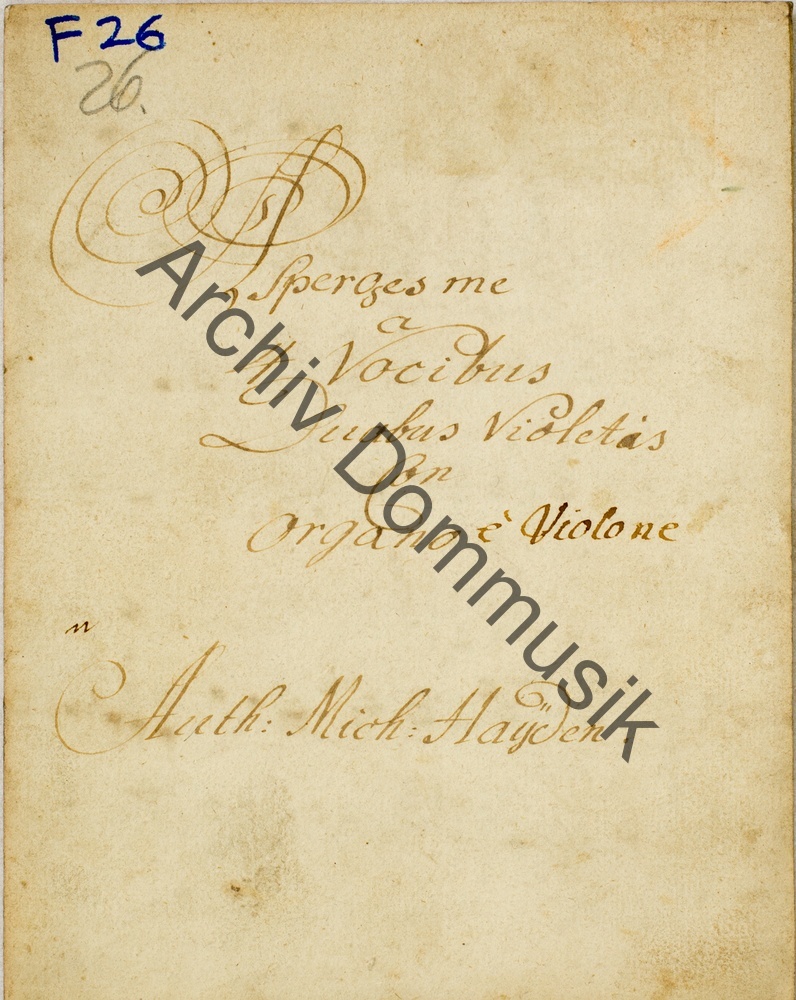 F 26
26.
Asperges me
a
4 Vocibus
Duabus Violetis
Con
Organo è Violone
Auth: Mich: Haÿden.
Archiv Dommusik